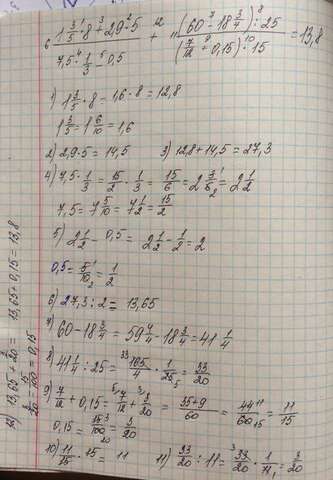 6 (1 3/5 ·¹ 8 +³ 2,9 ·² 5) / (7,5 ·⁴ 1/3 −⁵ 0,5) +¹² ¹¹ (60 −⁷ 18 3/4) :⁸ 25 / (7/12 +⁹ 0,15) ·¹⁰ 15 = 13,8
1) 1 3/5 · 8 = 1,6 · 8 = 12,8
1 3/5 = 1 6/10 = 1,6
2) 2,9 · 5 = 14,5 3) 12,8 + 14,5 = 27,3
4) 7,5 · 1/3 = 15/2 · 1/3 = 15/6 = 2 3/6 = 2 1/2
7,5 = 7 5/10 = 7 1/2 = 15/2
5) 2 1/2 − 0,5 = 2 1/2 − 1/2 = 2
0,5 = 5/10 = 1/2
6) 27,3 : 2 = 13,65
7) 60 − 18 3/4 = 59 4/4 − 18 3/4 = 41 1/4
8) 41 1/4 : 25 = 165/4 · 1/25 = 33/20
9) 7/12 + 0,15 = 7/12 + 3/20 = 35+9/60 = 44/60 = 11/15
0,15 = 15/100 = 3/20
10) 11/15 · 15 = 11 11) 33/20 : 11 = 33/20 · 1/11 = 3/20
12) 13,65 + 3/20 = 13,65 + 0,15 = 13,8
3/20 = 15/100 = 0,15